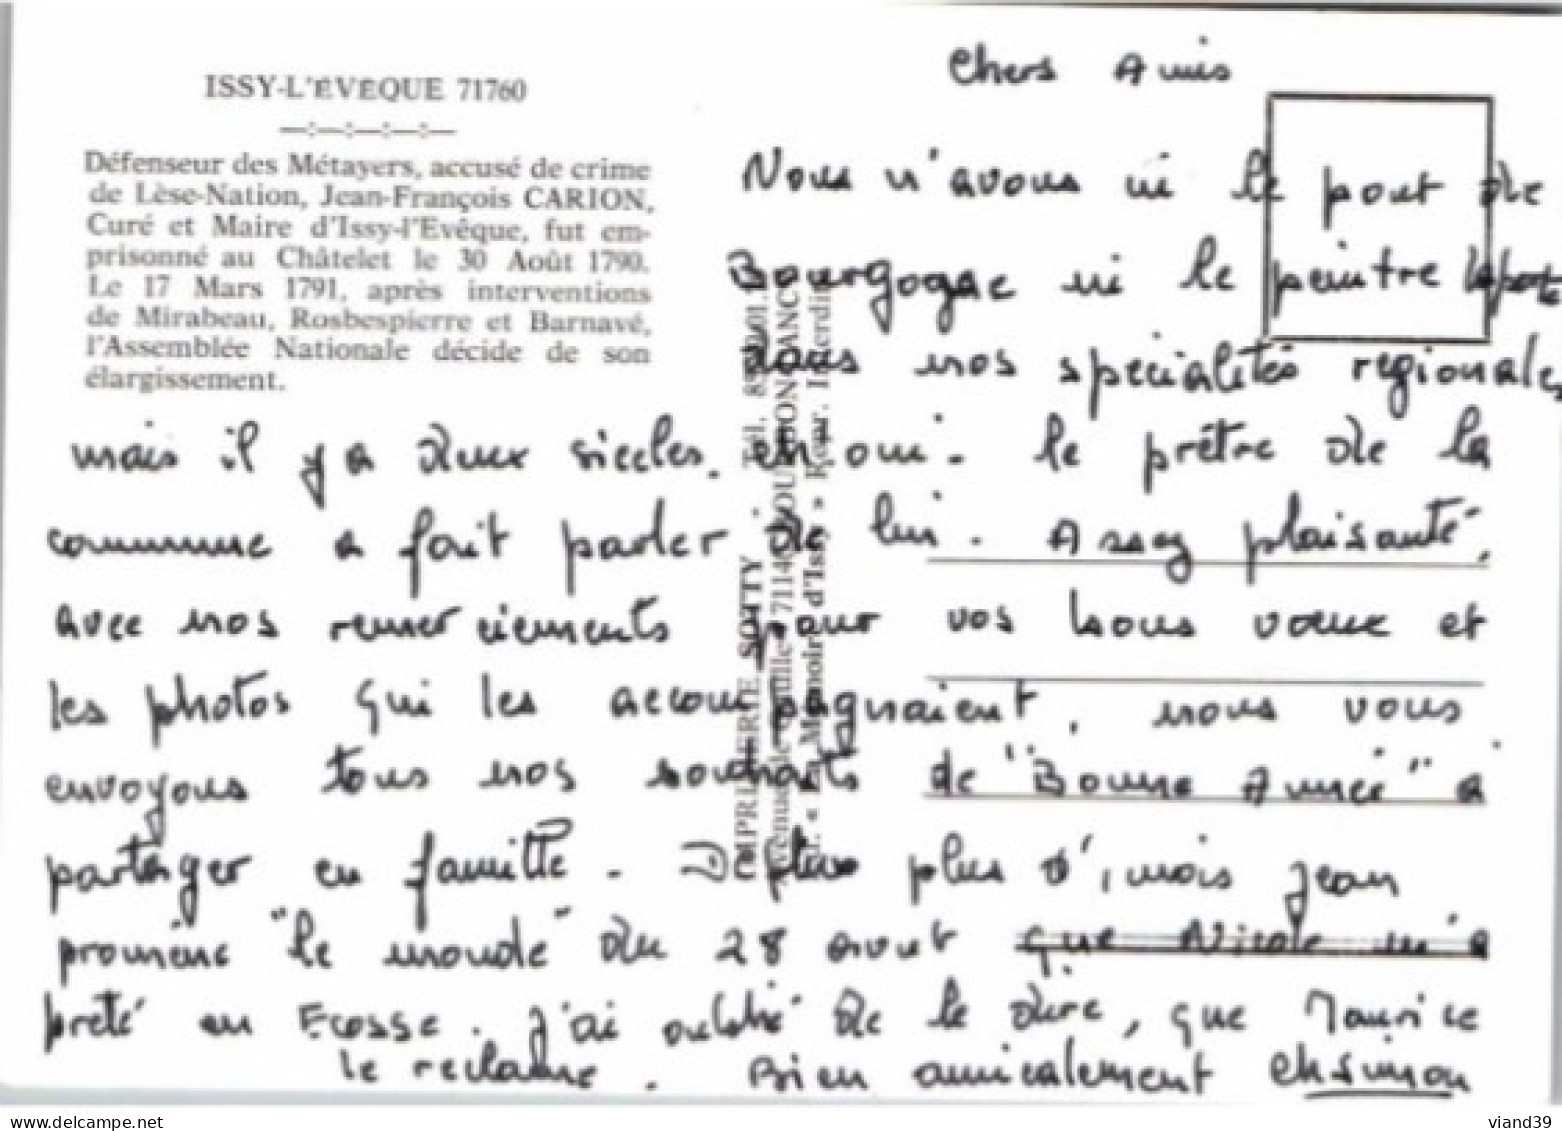 ISSY-L'ÉVÊQUE 71760
—:—:—:—:—
Défenseur des Métayers, accusé de crime
de Lèse-Nation, Jean-François CARION,
Curé et Maire d'Issy-l'Evêque, fut em-
prisonné au Châtelet le 30 Août 1790.
Le 17 Mars 1791, après interventions
de Mirabeau, Rosbespierre et Barnavé,
l'Assemblée Nationale décide de son
élargissement.
IMPRIMERIE SOTTY Tél. 85
Avenue de Gaulle 71140 BOURBON-LANCY
« La Mémoire d'Issy » Repr. Interdite
Chers Amis
Nous n'avons ni le pont de
Bourgogne ni le peintre
dans nos spécialités régionales
mais il y a deux siècles. eh oui. le prêtre de la
commune a fait parler de lui. Assez plaisanté.
avec nos remerciements pour vos bons voeux et
les photos qui les accompagnaient, nous vous
envoyons tous nos souhaits de "Bonne Année" à
partager en famille. Depuis plus d'1 mois Jean
promène "le monde" du 28 aout que Nicole m'a
prêté en Ecosse. J'ai oublié de le dire, que Maurice
le réclame. Bien amicalement
viand39